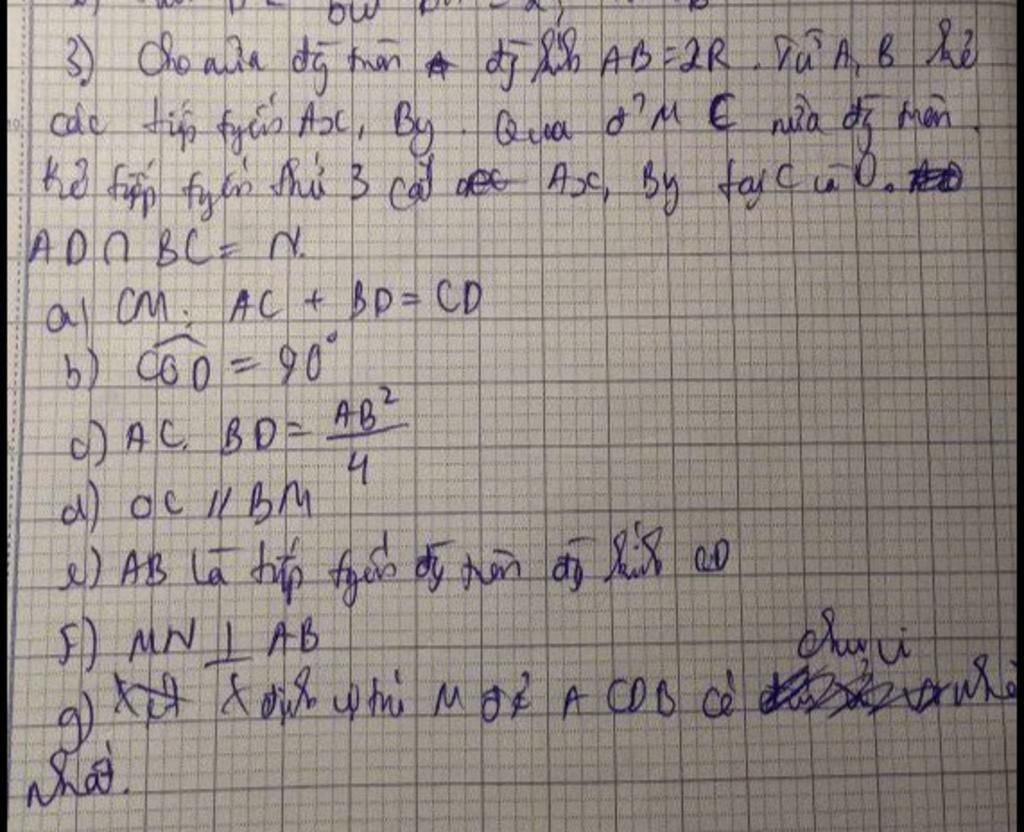 3) Cho nửa đg tròn đg kính AB=2R. Từ A, B kẻ
các tiếp tyến Ax, By. Qua đ' M ∈ nửa đg tròn.
Kẻ tiếp tyến thứ 3 cắt Ax, By tại C và D.
AD ∩ BC = N.
a) CM: AC + BD = CD
b) \widehat{COD} = 90°
c) AC. BD = \frac{AB^2}{4}
d) OC // BM
e) AB là tiếp tyến đg tròn đg kính CD
f) MN ⊥ AB
chu vi
g) X định vị trí M để ACDB có nhỏ
nhất.